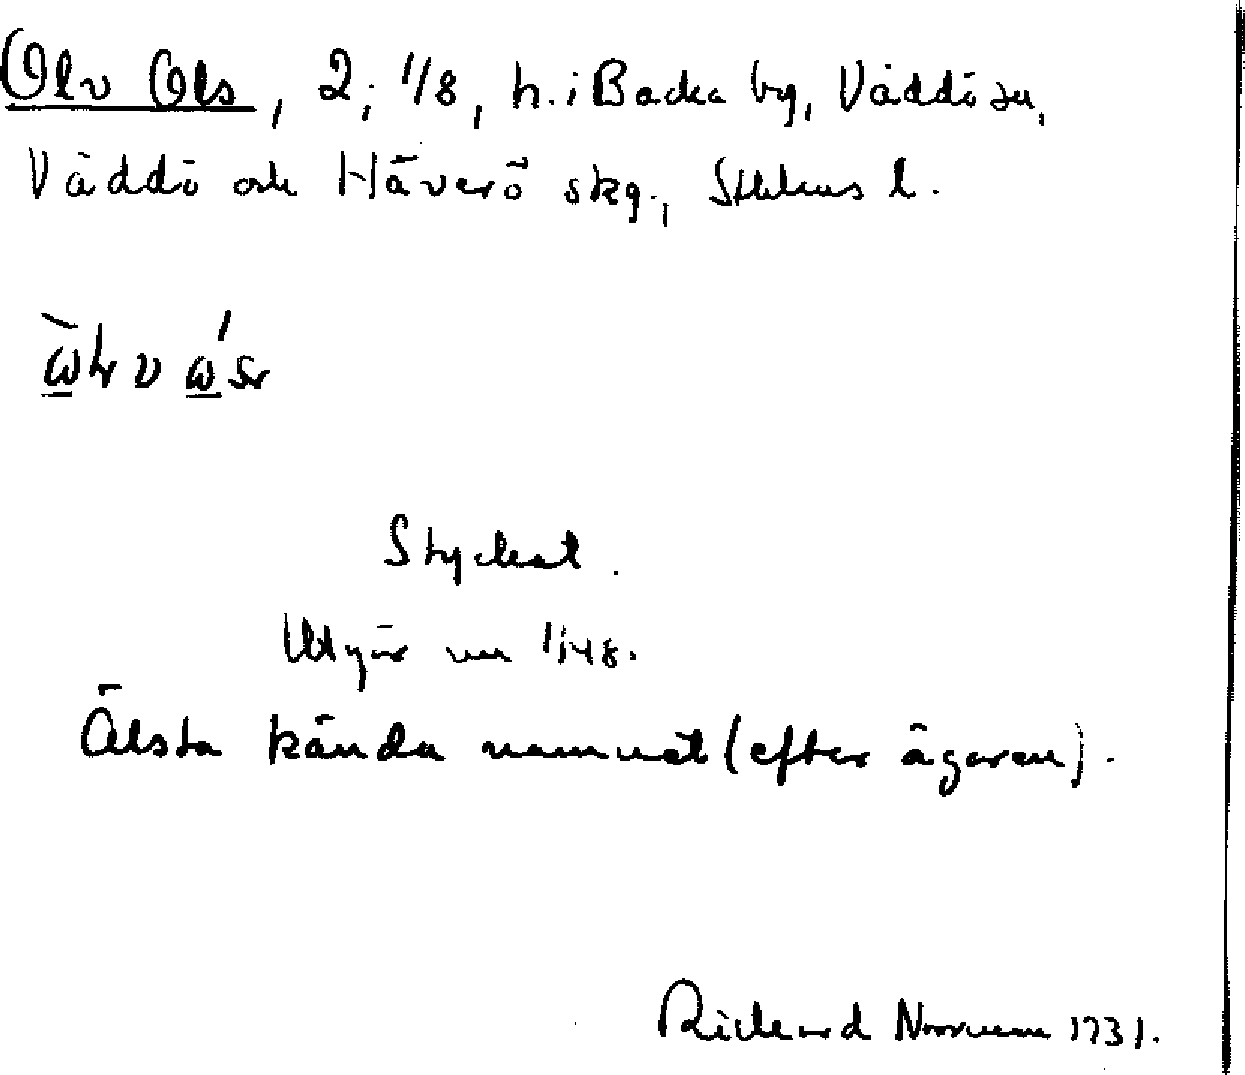 Olv Ols, 2; 1/8, h. i Backa by, Väddö sn,
Väddö och Häverö skg., Sthlms l.
Styckat.
Utgör nu 1:48.
Älsta kända namnet (efter ägaren).
Richard Norrman 1931.